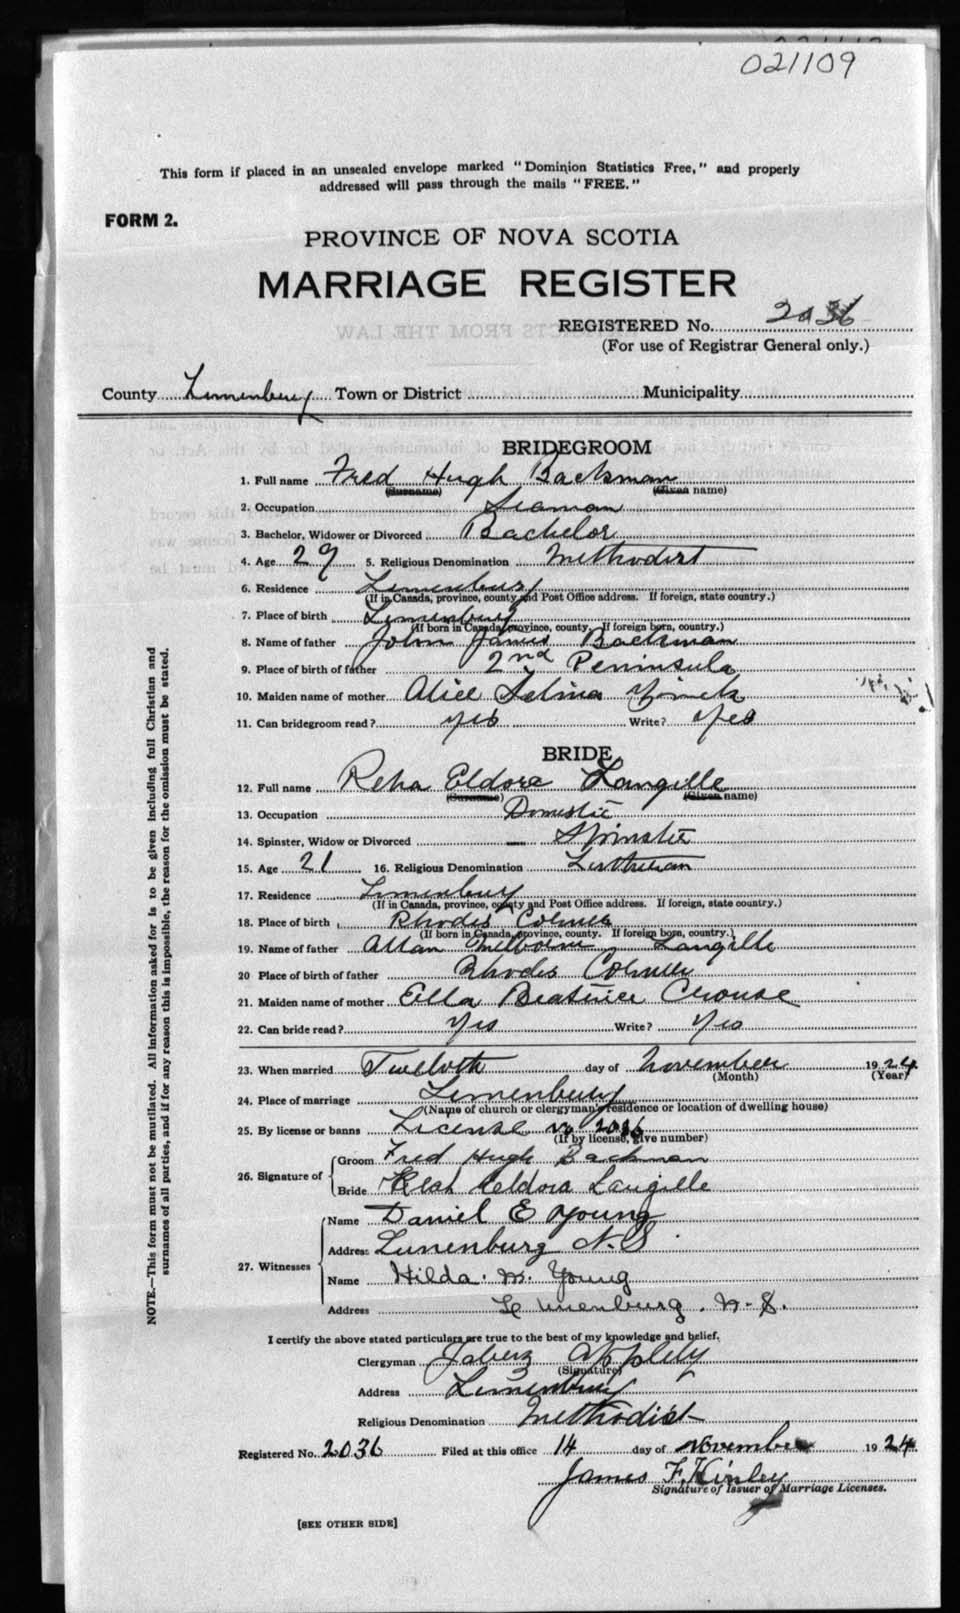 021109
This form if placed in an unsealed envelope marked "Dominion Statistics Free," and properly
addressed will pass through the mails "FREE."
FORM 2.
PROVINCE OF NOVA SCOTIA
MARRIAGE REGISTER
REGISTERED No. 2036
(For use of Registrar General only.)
County Lunenburg Town or District Municipality
BRIDEGROOM
1. Full name Fred Hugh Backman
(Surname) (Given name)
2. Occupation Seaman
3. Bachelor, Widower or Divorced Bachelor
4. Age 29 5. Religious Denomination Methodist
6. Residence Lunenburg
(If in Canada, province, county and Post Office address. If foreign, state country.)
7. Place of birth Lunenburg
(If born in Canada, province, county. If foreign born, country.)
8. Name of father John James Backman
9. Place of birth of father 2nd Peninsula
10. Maiden name of mother Alice Selina Zinck
11. Can bridegroom read? yes Write? Yes
BRIDE
12. Full name Reha Eldora Langille
(Surname) (Given name)
13. Occupation Domestic
14. Spinster, Widow or Divorced Spinster
15. Age 21 16. Religious Denomination Lutheran
17. Residence Lunenburg
(If in Canada, province, county and Post Office address. If foreign, state country.)
18. Place of birth Rhodes Corner
(If born in Canada, province, county. If foreign born, country.)
19. Name of father Allan Melbourne Langille
20 Place of birth of father Rhodes Corner
21. Maiden name of mother Ella Beatrice Crouse
22. Can bride read? Yes Write? Yes
23. When married Twelvth day of November 1924
(Month) (Year)
24. Place of marriage Lunenburg
(Name of church or clergyman's residence or location of dwelling house)
25. By license or banns License no 2036
(If by license, give number)
26. Signature of Groom Fred Hugh Backman
Bride Eldora Langille
27. Witnesses Name Daniel E Young
Address Lunenburg N.S.
Name Hilda. M. Young
Address Lunenburg. N.S.
I certify the above stated particulars are true to the best of my knowledge and belief.
Clergyman Jabez Appleby
(Signature)
Address Lunenburg
Religious Denomination Methodist
Registered No. 2036 Filed at this office 14 day of November 1924
James F. Kinley
Signature of Issuer of Marriage Licenses.
[SEE OTHER SIDE]
NOTE.—This form must not be mutilated. All information asked for is to be given including full Christian and
surnames of all parties, and if for any reason this is impossible, the reason for the omission must be stated.